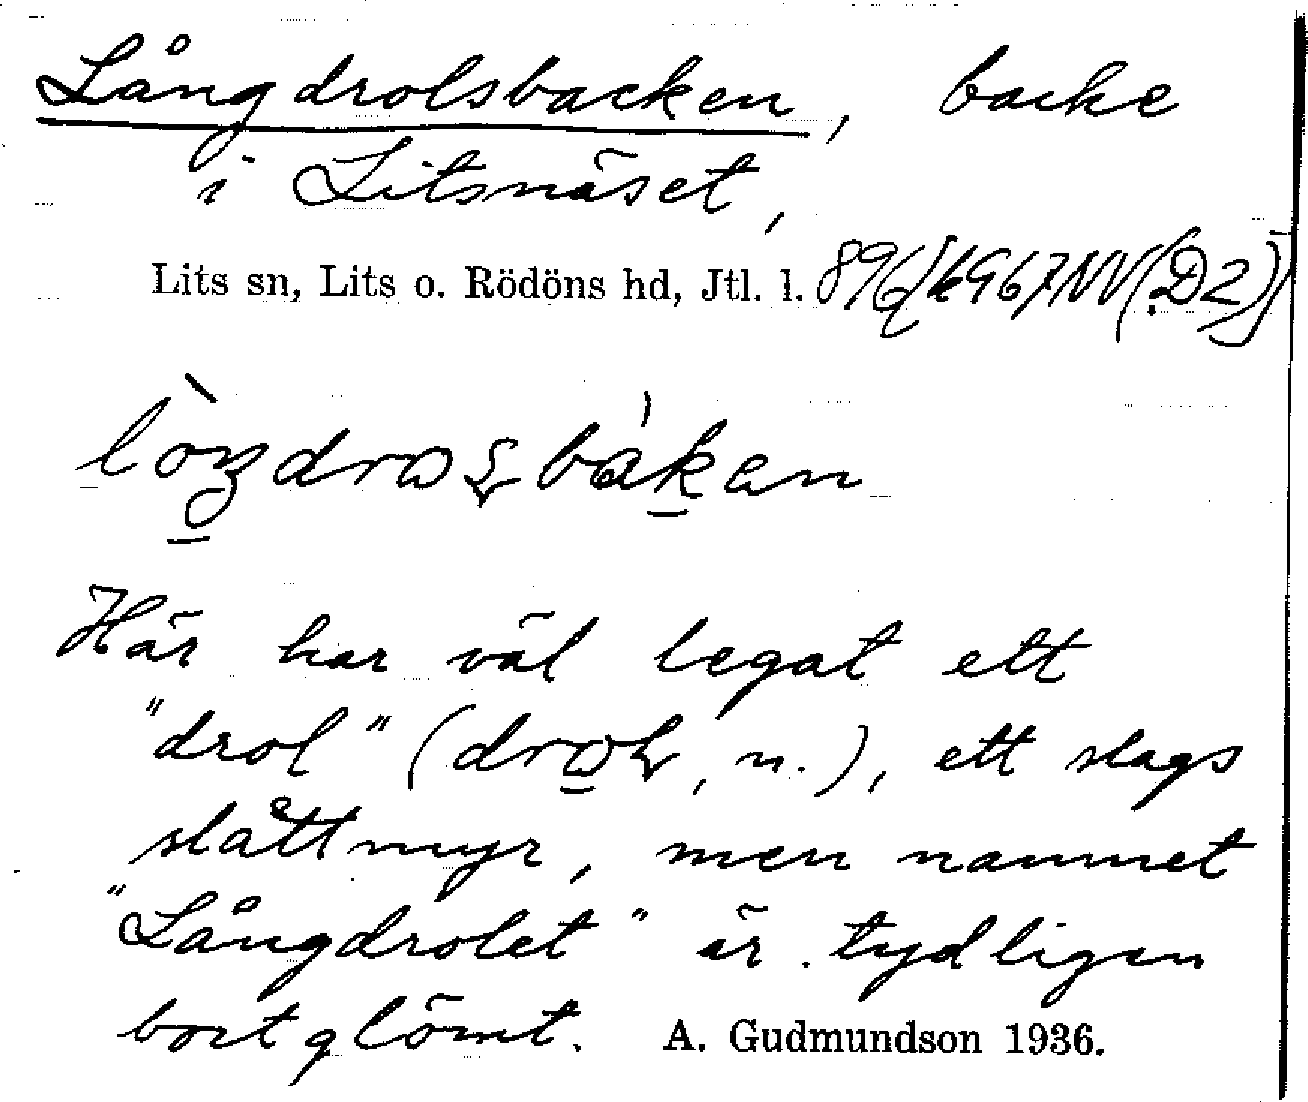 Långdrolsbacken, backe
i Litsnäset,
Lits sn, Lits o. Rödöns hd, Jtl. l.
Här har väl legat ett
"drol" ( , n.), ett slags
slåttmyr, men namnet
"Långdrolet" är tydligen
bortglömt. A. Gudmundson 1936.